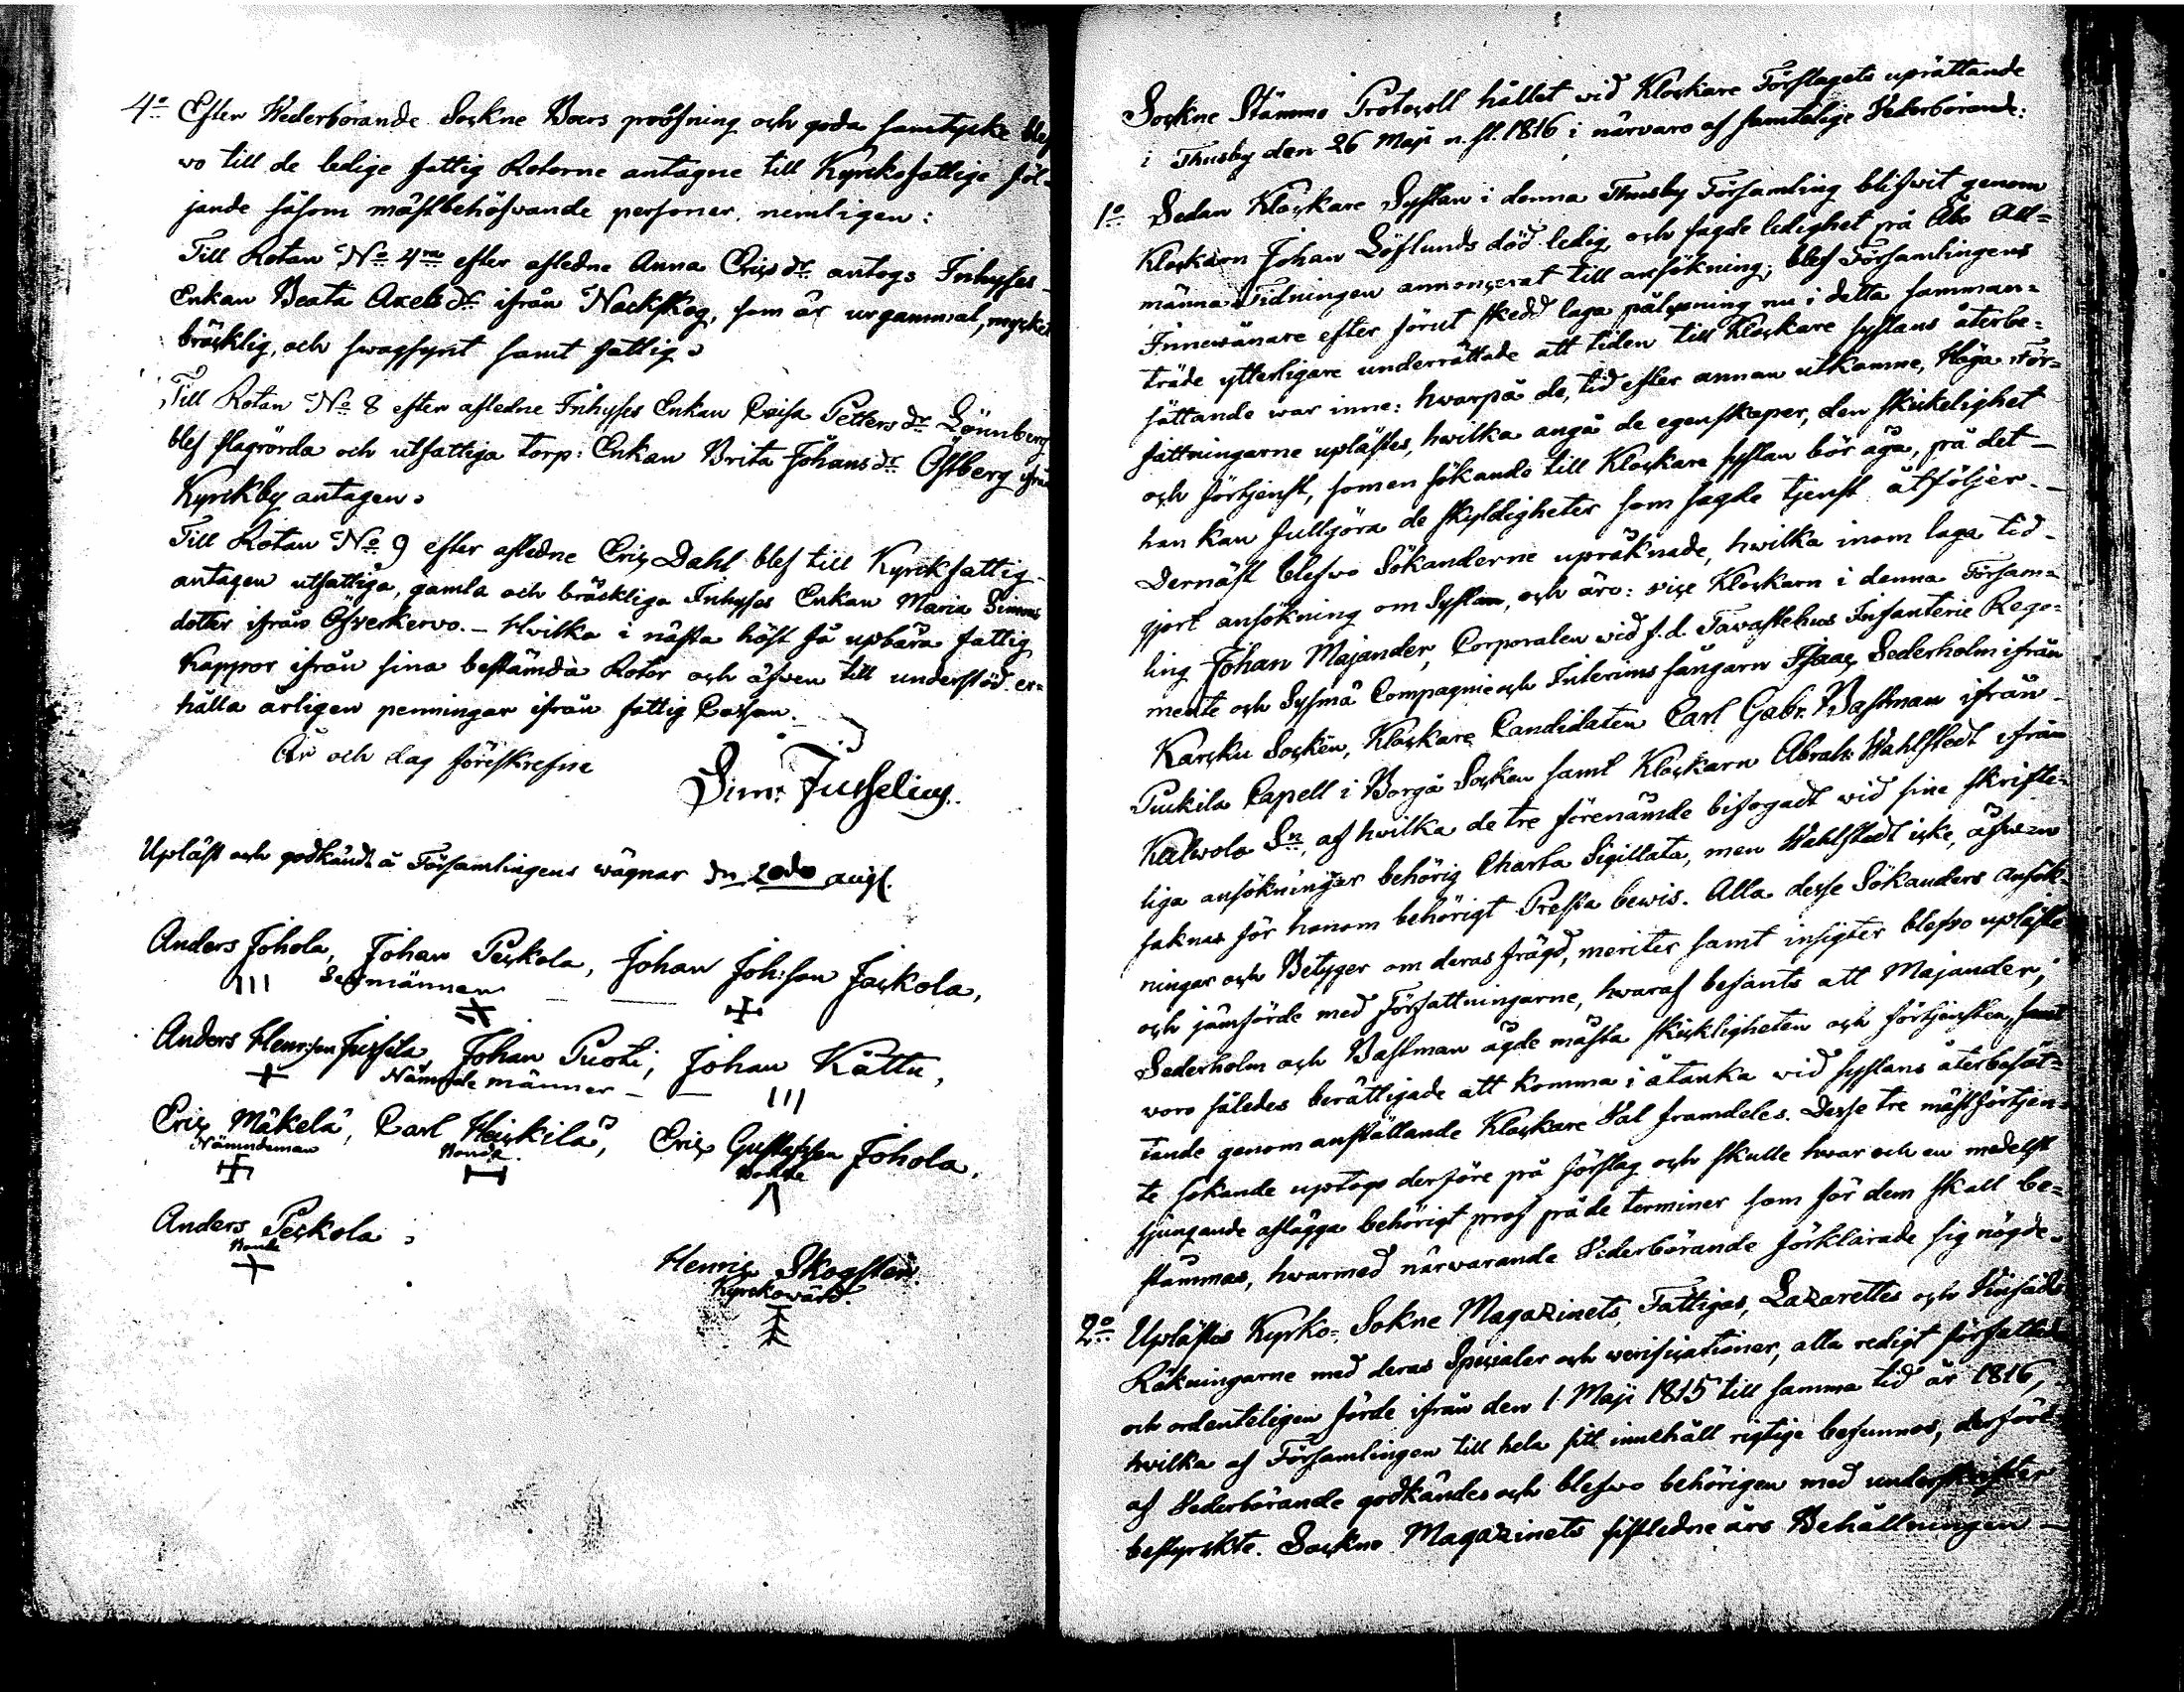 4:o Efter Wederbörande Sockne Boers pröfning och goda samtycke blef
wo till de ledige fattig Rotorne antagne till Kyrkofattige föl-
jande såsom mäst behöfvande personer, nemligen:
Till Rotan N:o 4 efter afledne Anna Ericsd:r antogs Inhyses
Enkan Beata Axelsd:r ifrån Nackskog, som är urgammal, mycket
bräcklig, och swagsynt samt fattig.
Till Rotan N:o 8 efter afledne Inhyses Enkan Caisa Pettersd:r Lönnberg
blef slagrörda och utfattiga torp: Enkan Brita Johansd:r Östberg ifrån
Kyrckby antagen.
Till Rotan N:o 9 efter afledne Eric Dahl blef till Kyrckfattig
antagen utfattiga, gamla och bräckliga Inhyses Enkan Maria Simons
dotter ifrån Öfverkervo. – Hvilka i nästa höst få upbära fattig
Kappor ifrån sina bestämda Rotor och äfwen till understöd er-
hålla årligen penningar ifrån fattig Cassan.
År och dag föreskrefne
Sim: Jusselius.
Upläst och godkändt å Församlingens wägnar d. 20de aug.
Anders Johola, Johan Peckola, Johan Joh:son Jackola,
Sexmännen
Anders Henr:son Jussila, Johan Puoti, Johan Kättu,
Nämnde männer
Eric Mäkelä, Carl Heickilä, Eric Gustafsson Johola,
Nämndeman Bonde Bonde
Anders Peckola.
Bonde
Henric Skogster
Kyrckowärd.
Sockne Stämmo Protocoll hållet wid Klockare Förslagets uprättande
i Thusby den 26 Maji n. st. 1816 i närvaro af samtelige Wederbörande:
1:o Sedan Klockare Sysslan i denna Thusby Församling blifwit genom
Klockarn Johan Löflunds död ledig och sagde ledighet på Åbo All-
männa Tidningen annoncerat till ansökning, blef Församlingens
Innewånare efter förut skedd laga pålysning nu i detta samman-
träde ytterligare underrättade att tiden till Klockare sysslans återbe-
sättande war inne: hvarpå de, tid efter annan utkomne, Höga För-
fattningarne uplästes, hwilka angå de egenskaper, den skickelighet
och förtjenst, som en sökande till Klockare sysslan bör äga, på det
han kan fullgöra de skyldigheter som sagde tjenst åtföljer. –
Dernäst blefwo Sökanderne upräknade, hwilka inom laga tid
gjort ansökning om Sysslan, och äro: vice Klockarn i denna Försam-
ling Johan Majander, Corporalen wid f.d. Tavastehus Infanterie Rege-
mente och Sysmä Compagnie och Interims sångarn Isaac Sederholm ifrån
Karcku Socken, Klockare Candidaten Carl Gabr. Bastman ifrån
Puckila Capell i Borgå Socken samt Klockarn Abrah: Wahlstedt ifrån
Kalwola S:n, af hvilka de tre förenämde bifogadt wid sine skrifte-
liga ansökningar behörig Charta Sigillata, men Wahlstedt icke, äfwen
saknas för honom behörigt Prestabewis. Alla desse Sökanders ansök-
ningar och Betyger om deras frägd, meriter samt insigter blefvo upläste
och jämförde med Författningarne, hwaraf befants att Majander,
Sederholm och Bastman ägde mästa skickligheten och förtjensten, samt
woro således berättigade att komma i åtanka wid sysslans återbesät-
tande genom anställande Klockare Val framdeles. Desse tre mäst förtjen-
te sökande uptogs derföre på förslag och skulle hvar och en medelst
sjungande aflägga behörigt prof på de terminer som för dem skall be-
stämmas, hwarmed närwarande Wederbörande förklarade sig nögde.
2:o Uplästes Kyrko-, Sokne Magazinets, Fattigas, Lazarettes och Vinsäds
Räkningarne med deras Specialer och verificationer, alla redigt författade
och ordenteligen förde ifrån den 1 Maji 1815 till samma tid år 1816,
hvilka af Församlingen till hela sitt innehåll rigtige befunnos, derföre
af Wederbörande godkändes och blefwo behörigen med underskrifter
bestyrckte. Sockne Magazinets sistledne års Behållningen –